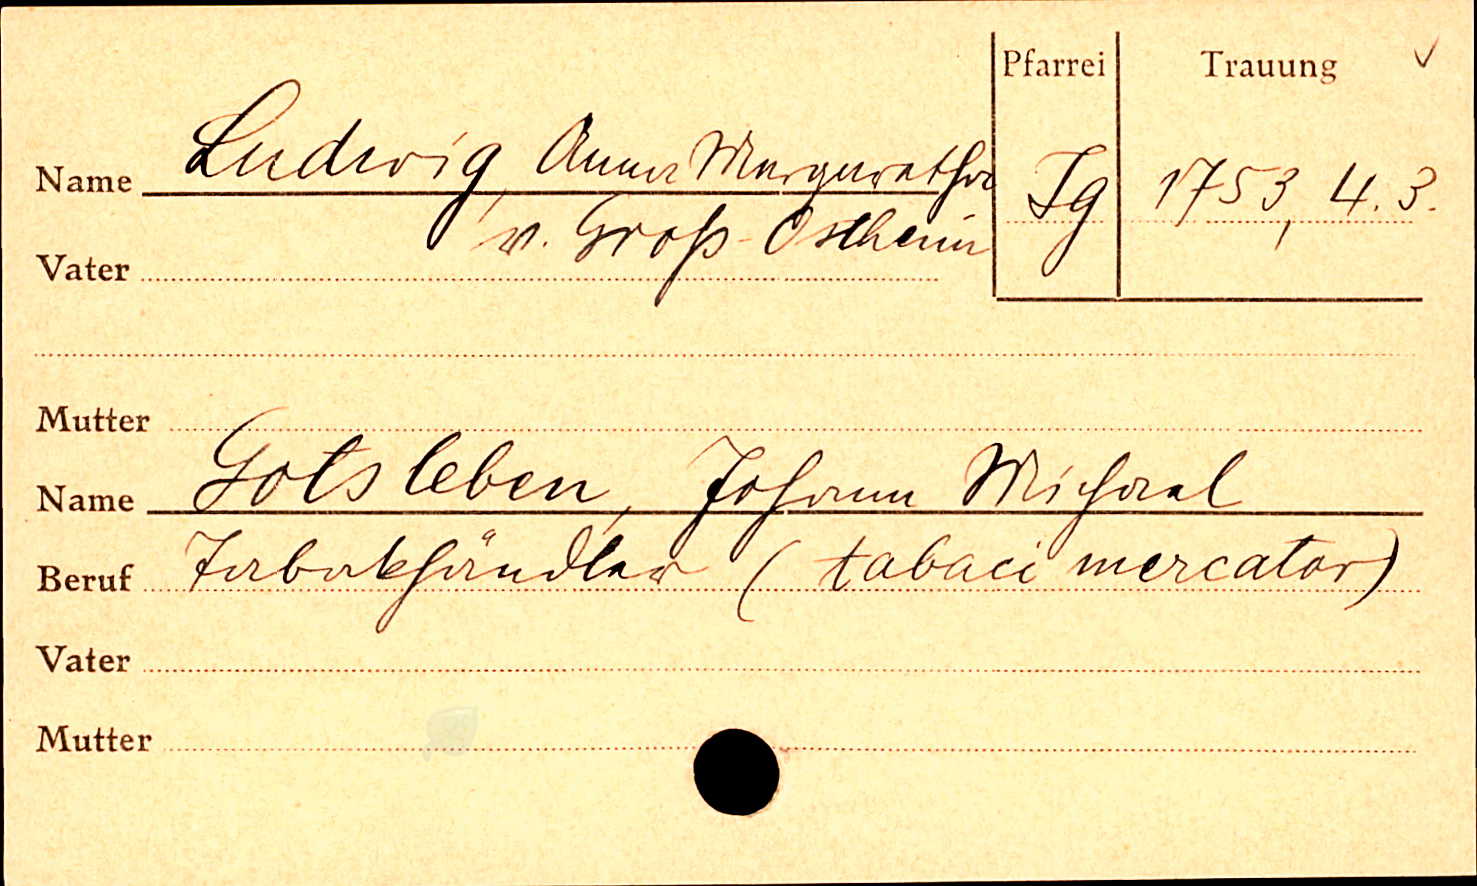 Pfarrei Trauung ✓
Name Ludwig, Anna Margaretha Ig 1753, 4. 3.
v. Groß-Ostheim
Vater
Mutter
Name Gotsleben, Johann Michael
Beruf Tabakhändler (tabaci mercator)
Vater
Mutter